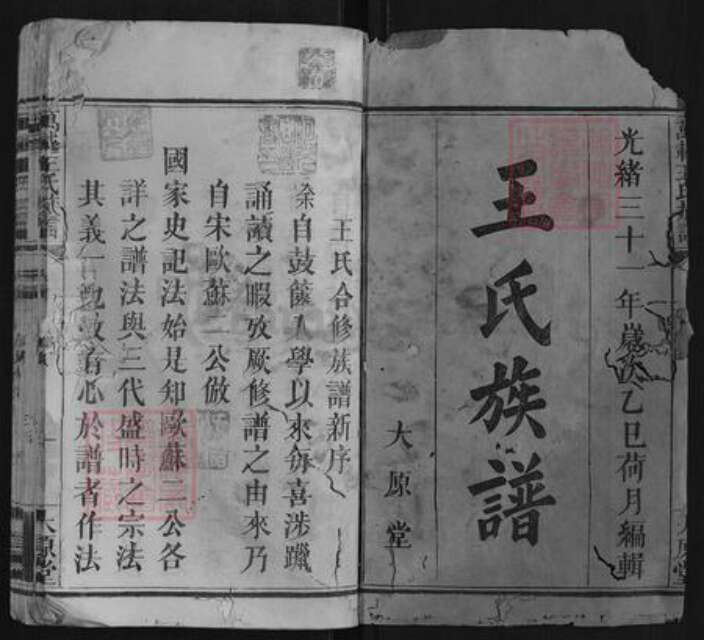 光緒三十一年歲次乙巳荷月編輯
王氏族譜
大原堂
王氏合修族譜新序
余自鼓篋入學以來每喜涉獵
誦讀之暇攷厥修譜之由來乃
自宋歐蘇二公倣
國家史記法始是知歐蘇二公各
詳之譜法與三代盛時之宗法
其義一也故有心於譜者作法